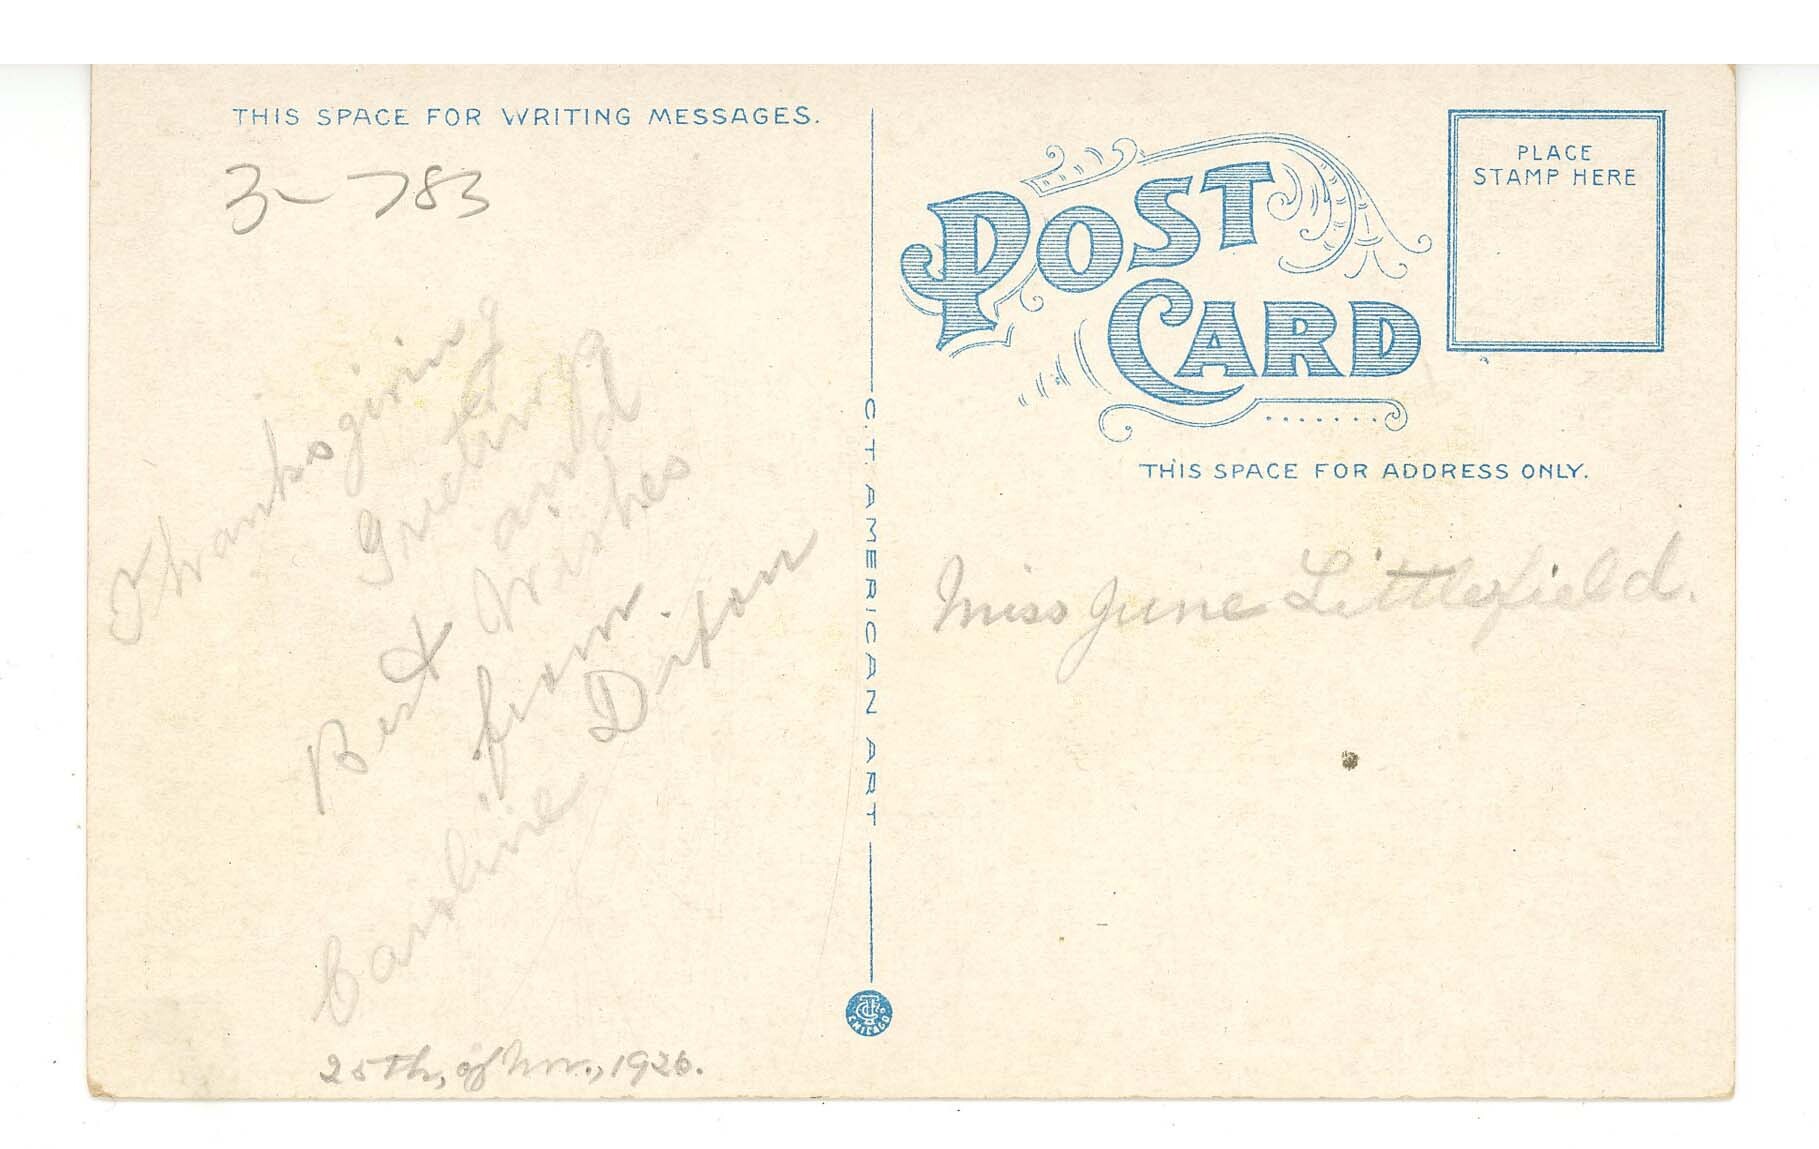 THIS SPACE FOR WRITING MESSAGES.
3-783
Thanksgiving
Greetings
and
Best Wishes
from
Caroline Dixon
25Th, of Nov., 1926.
C.T. AMERICAN ART
CHICAGO
POST
CARD
PLACE
STAMP HERE
THIS SPACE FOR ADDRESS ONLY.
Miss June Littlefield.